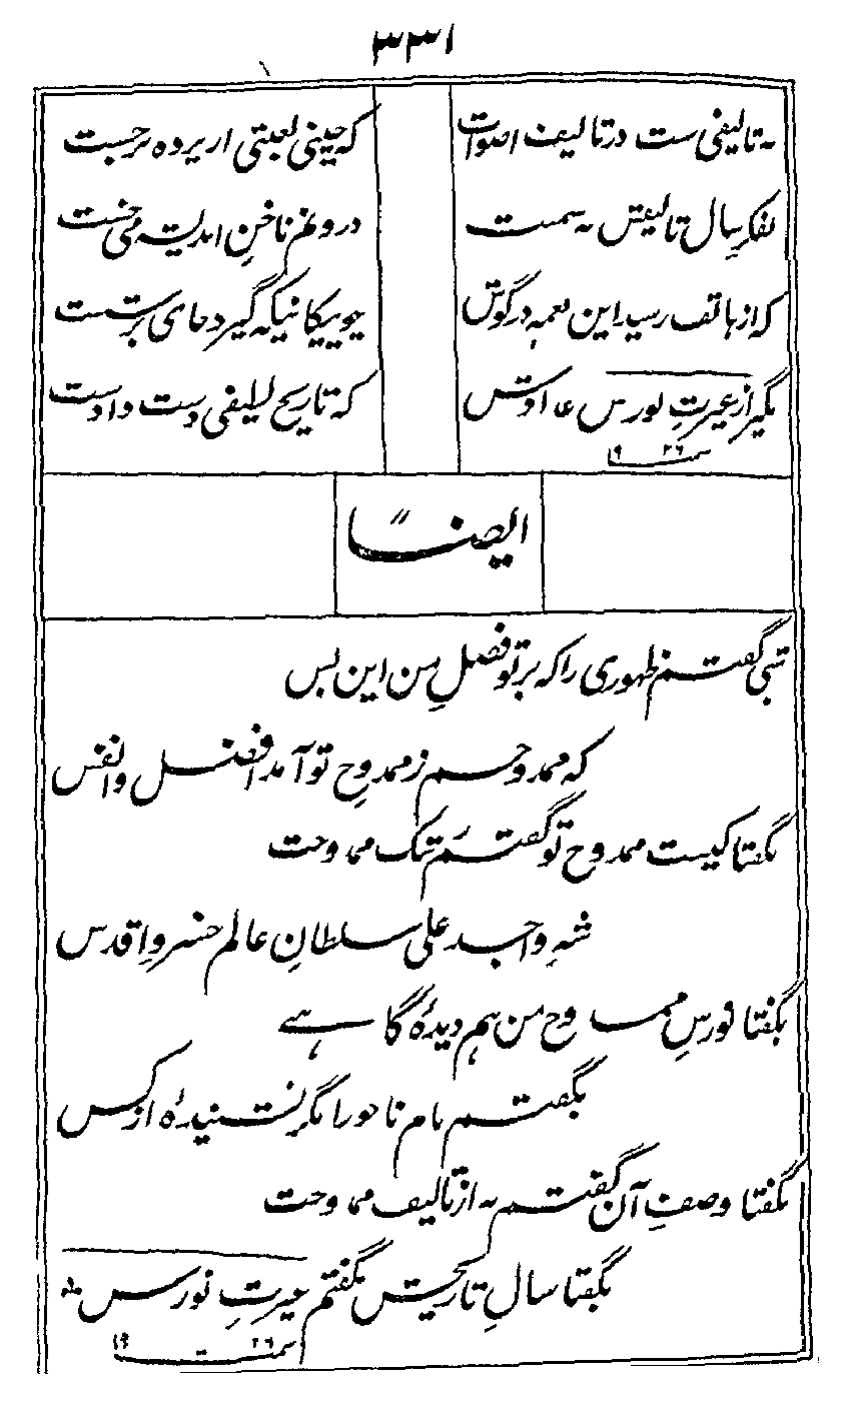 ۳۳۱
نہ تالیفی ست در تالیف اصوات که چینی لعبتی از پرده برجست
بفکرِ سال تالیفش نشست درونم ناخنِ اندیشه می خست
که از هاتف رسید این نغمه در گوش چو پیکانیکه گیرد جای بر شست
بگیر از غیرتِ نورس اعدادش که تاریخ لطیفی دست دادست
سنہ ۱۹۲۶
ایضاً
شبی گفتم ظهوری را که بر تو فضلِ من این بس
که ممدوحم ز ممدوحِ تو آمد افضل و انفس
بگفتا کیست ممدوحِ تو گفتم تک ممدوحت
شهِ واجد علی سلطانِ عالم خسروِ اقدس
بگفتا نورسِ ممدوح من هم دیدۂ گاہے
بگفتم نام ناجو را مگر نشنیدۂ از کس
بگفتا وصفِ آن گفتم به از تالیف ممدوحت
بگفتا سالِ تاریخش بگفتم غیرتِ نورس
سنہ ۱۹۲۶